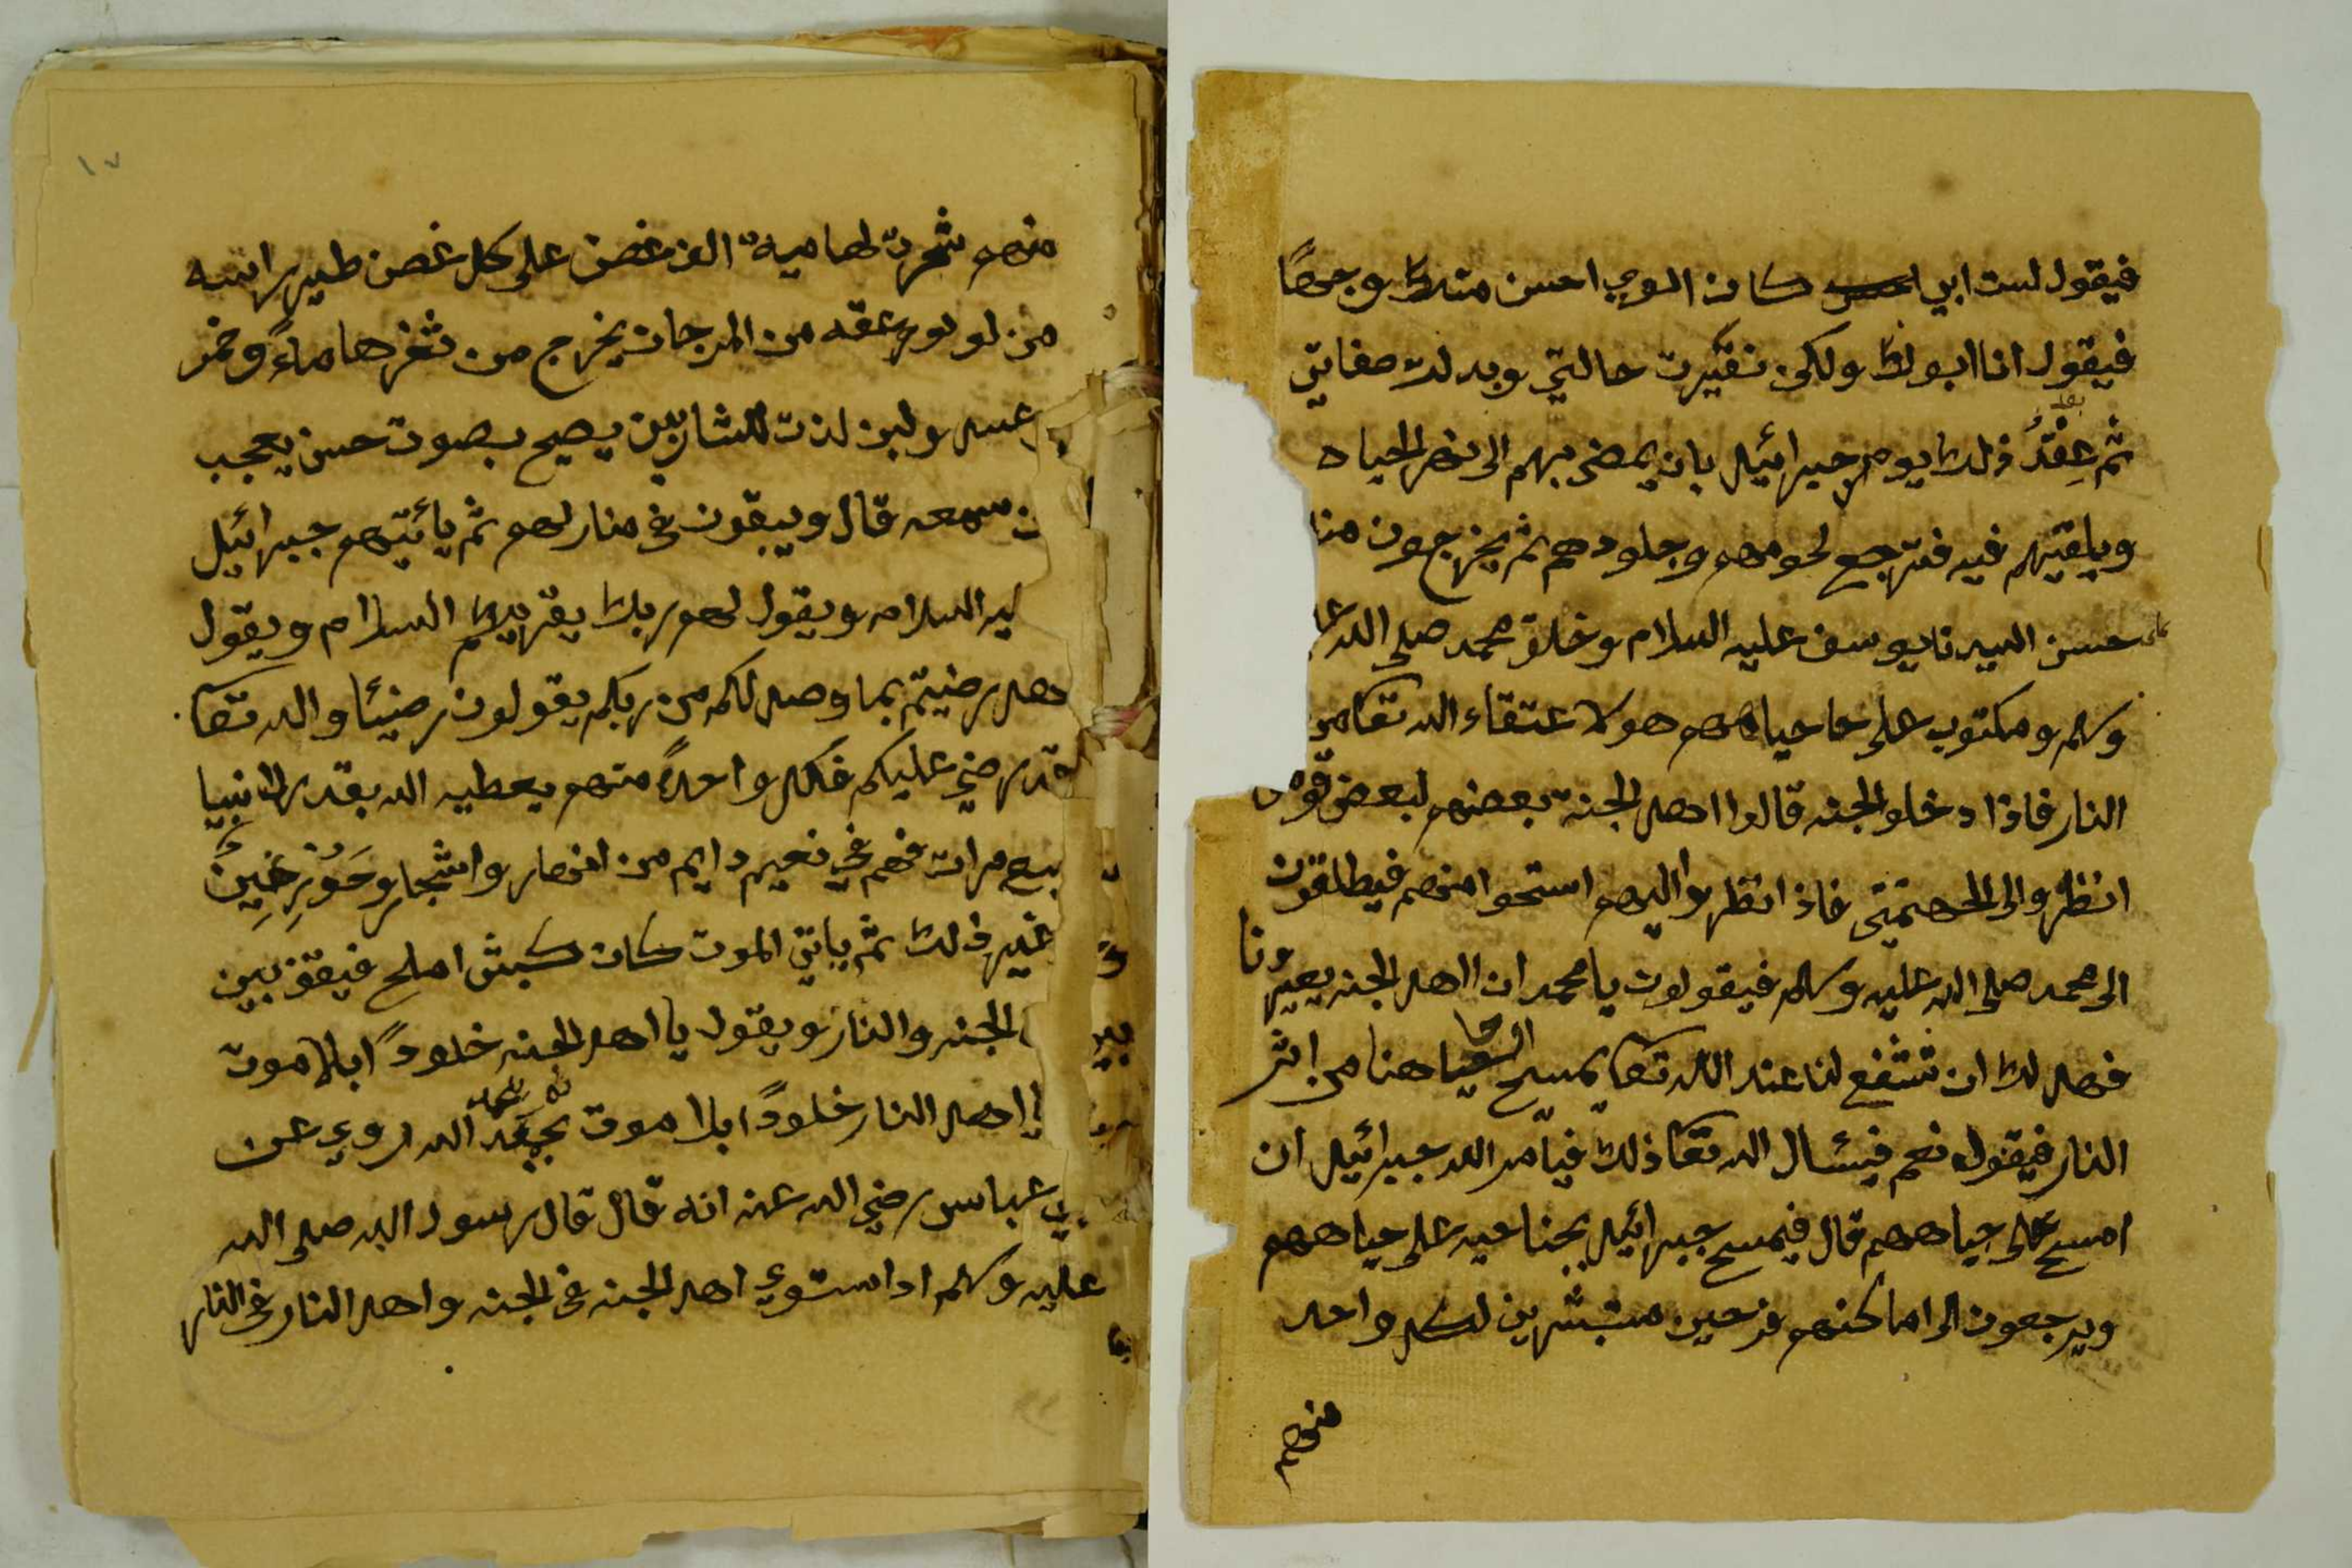 فيقول لست ابي كان ابوي احسن منك وجهًا
فيقول انا ابوك ولكن تغيرت حالتي وبدلت صفاتي
ثم بعد ذلك يومر جبرائيل بان يمضي بهم الى نهر الحياه
ويلقيهم فيه فترجع لحومهم وجلودهم ثم يخرجون
على حسن السيدنا يوسف عليه السلام وخلق محمد صلى الله
وسلم ومكتوب على حاحياههم هولا عتقاء الله تعا من
النار فاذا دخلو الجنه قالوا اهل الجنة بعضهم لبعض
انظرو الى الجهنميتي فاذ انظرو اليهم استحوا منهم فيطلقون
الى محمد صلى الله عليه وسلم فيقولون يا محمد ان اهل الجنه يعيرونا
فهل لك ان تشفع لنا عند الله تعا يمسح هنا من اثر
النار فيقول نعم فيسئال الله تعا ذلك فيأمر الله جبرائيل ان
امسح على حياههم قال فيمسح جبرائيل بجناحيه على حياههم
ويرجعون الى اماكنهم فرحين مستبشرين لكل واحد
منهم
١٧
منهم شجرت لها مية الف غصن على كل غصن طير راسه
من لولو وعنقه من المرجان يخرج من ثغرها ماءً وخمر
وعسل ولبن لذت للشاربين يصيح بصوت حسن يعجب
من سمعه قال ويبقون في منازلهم ثم يأتيهم جبرائيل
ليه السلام ويقول لهم ربك يقريكم السلام ويقول
هل رضيتم بما وصل لكم من ربكم يقولون رضينا والله تعا
قد رضي عليكم فكل واحدً منهم يعطيه الله بقدر الدنيا
سبع مرات فهم في نعيم دايم من انهار واشجار وحور عين
غير ذلك ثم ياتي الموت كان كبش املح فيقف بين
الجنه والنار ويقول يا اهل الجنه خلودً ابلا موت
يا اهل النار خلودً ابلا موت الله روي عن
بي عباس رضي الله عنه انه قال قال رسول الله صلى الله
عليه وسلم اذا ستوي اهل الجنه في الجنه واهل النار في النار